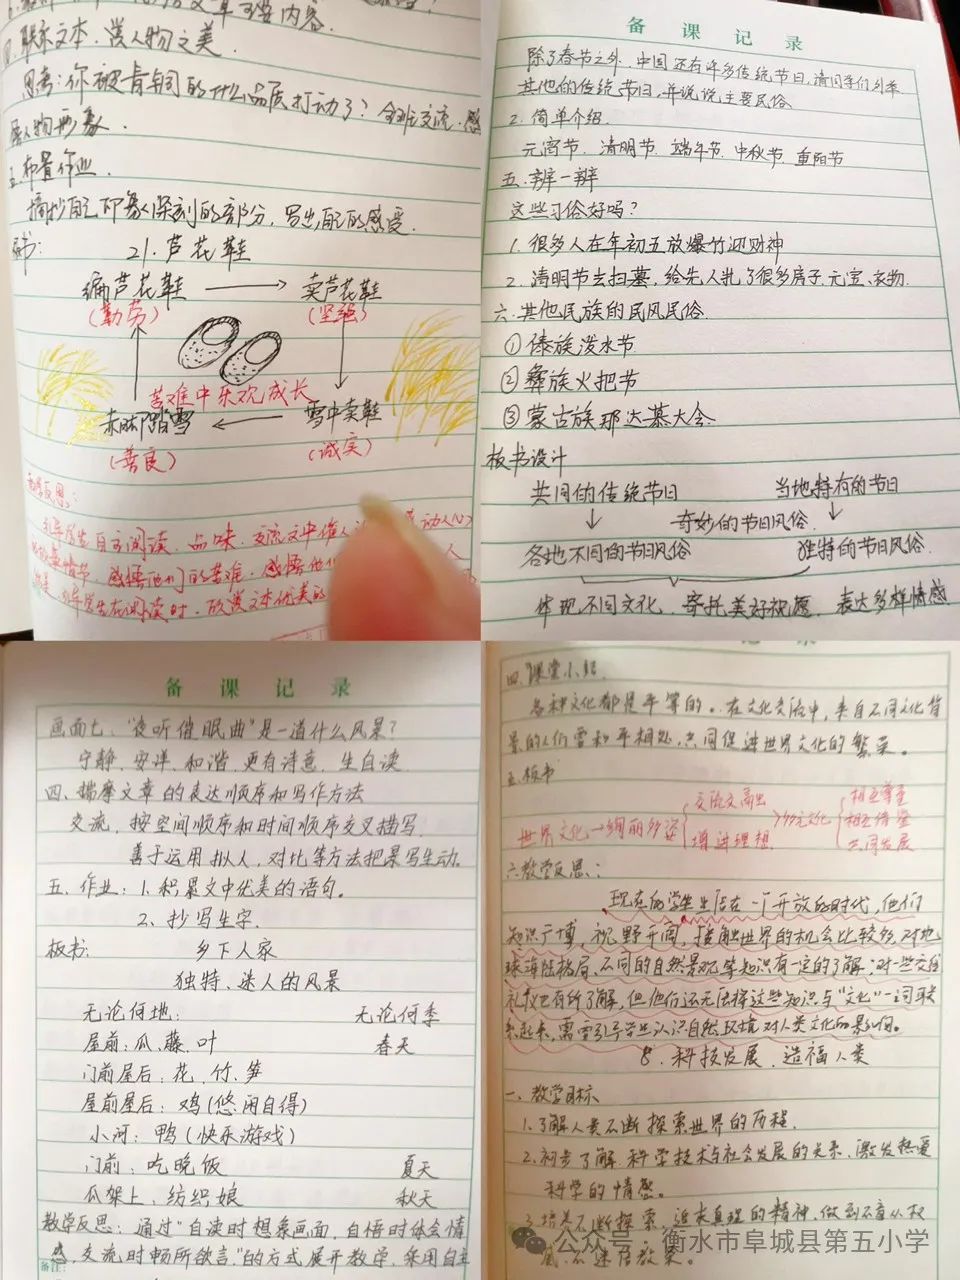 四.联系文本,赏人物之美.
思考:你被青铜的什么品质打动了?全班交流.感
悟人物形象.
五.布置作业.
摘抄自己印象深刻的部分,写出自己的感受.
板书:
21.芦花鞋
编芦花鞋 卖芦花鞋
(勤劳) (坚强)
苦难中乐观成长
赤脚踏雪 雪中卖鞋
(善良) (诚实)
教学反思:
引导学生自主阅读、品味、交流文中
情节,感悟他们的苦难,感悟他
引导学生在阅读时,欣赏文本优美的
备课记录
除了春节之外,中国还有许多传统节日,请同学们列举
其他的传统节日,并说说主要民俗
2.简单介绍.
元宵节、清明节、端午节、中秋节、重阳节
五.辨一辨
这些习俗好吗?
1.很多人在年初五放爆竹迎财神
2.清明节去扫墓,给先人扎了很多房子、元宝、衣物.
六.其他民族的民风民俗.
①傣族泼水节
②彝族火把节
③蒙古族那达慕大会.
板书设计
共同的传统节日 当地特有的节日
奇妙的节日风俗
各地不同的节日风俗 独特的节日风俗.
体现不同文化、寄托美好祝愿、表达多样情感
备课记录
画面七:“夜听催眠曲”是一道什么风景?
宁静、安详、和谐,更有诗意,生自读.
四、揣摩文章的表达顺序和写作方法
交流,按空间顺序和时间顺序交叉描写.
善于运用拟人,对比等方法把景写生动.
五、作业:1.积累文中优美的语句。
2、抄写生字.
板书: 乡下人家
独特、迷人的风景
无论何地: 无论何季
屋前:瓜、藤、叶 春天
门前屋后:花、竹、笋
屋前屋后:鸡(悠闲自得)
小河:鸭(快乐游戏)
门前:吃晚饭 夏天
瓜架上:纺织娘 秋天
教学反思:通过“自读时想象画面,自悟时体会情
感,交流时畅所欲言”的方式展开教学,采用自主
备注:
四.课堂小结.
各种文化都是平等的。在文化交流中,来自不同文化背
景的人们需和平相处,共同促进世界文化的繁荣。
五.板书
世界文化→绚丽多姿 增进理想 多元文化 相互尊重
相互借鉴
共同发展
六.教学反思:
现在的学生生活在一个开放的时代,他们
知识广博,视野开阔,接触世界的机会比较多,对地
球海陆格局、不同的自然景观等知识有一定的了解;对一些文化
礼仪也有所了解,但他们还无法将这些知识与“文化”一词联
系起来,需要引导学生认识自然环境对人类文化的影响。
8.科技发展,造福人类
一、教学目标
1.了解人类不断探索世界的历程.
2.初步了解科学技术与社会发展的关系,激发热爱
科学的情感。
3.培养不断探索,追求真理的精神,做到不盲从权
威,不迷信教条。
公众号·衡水市阜城县第五小学